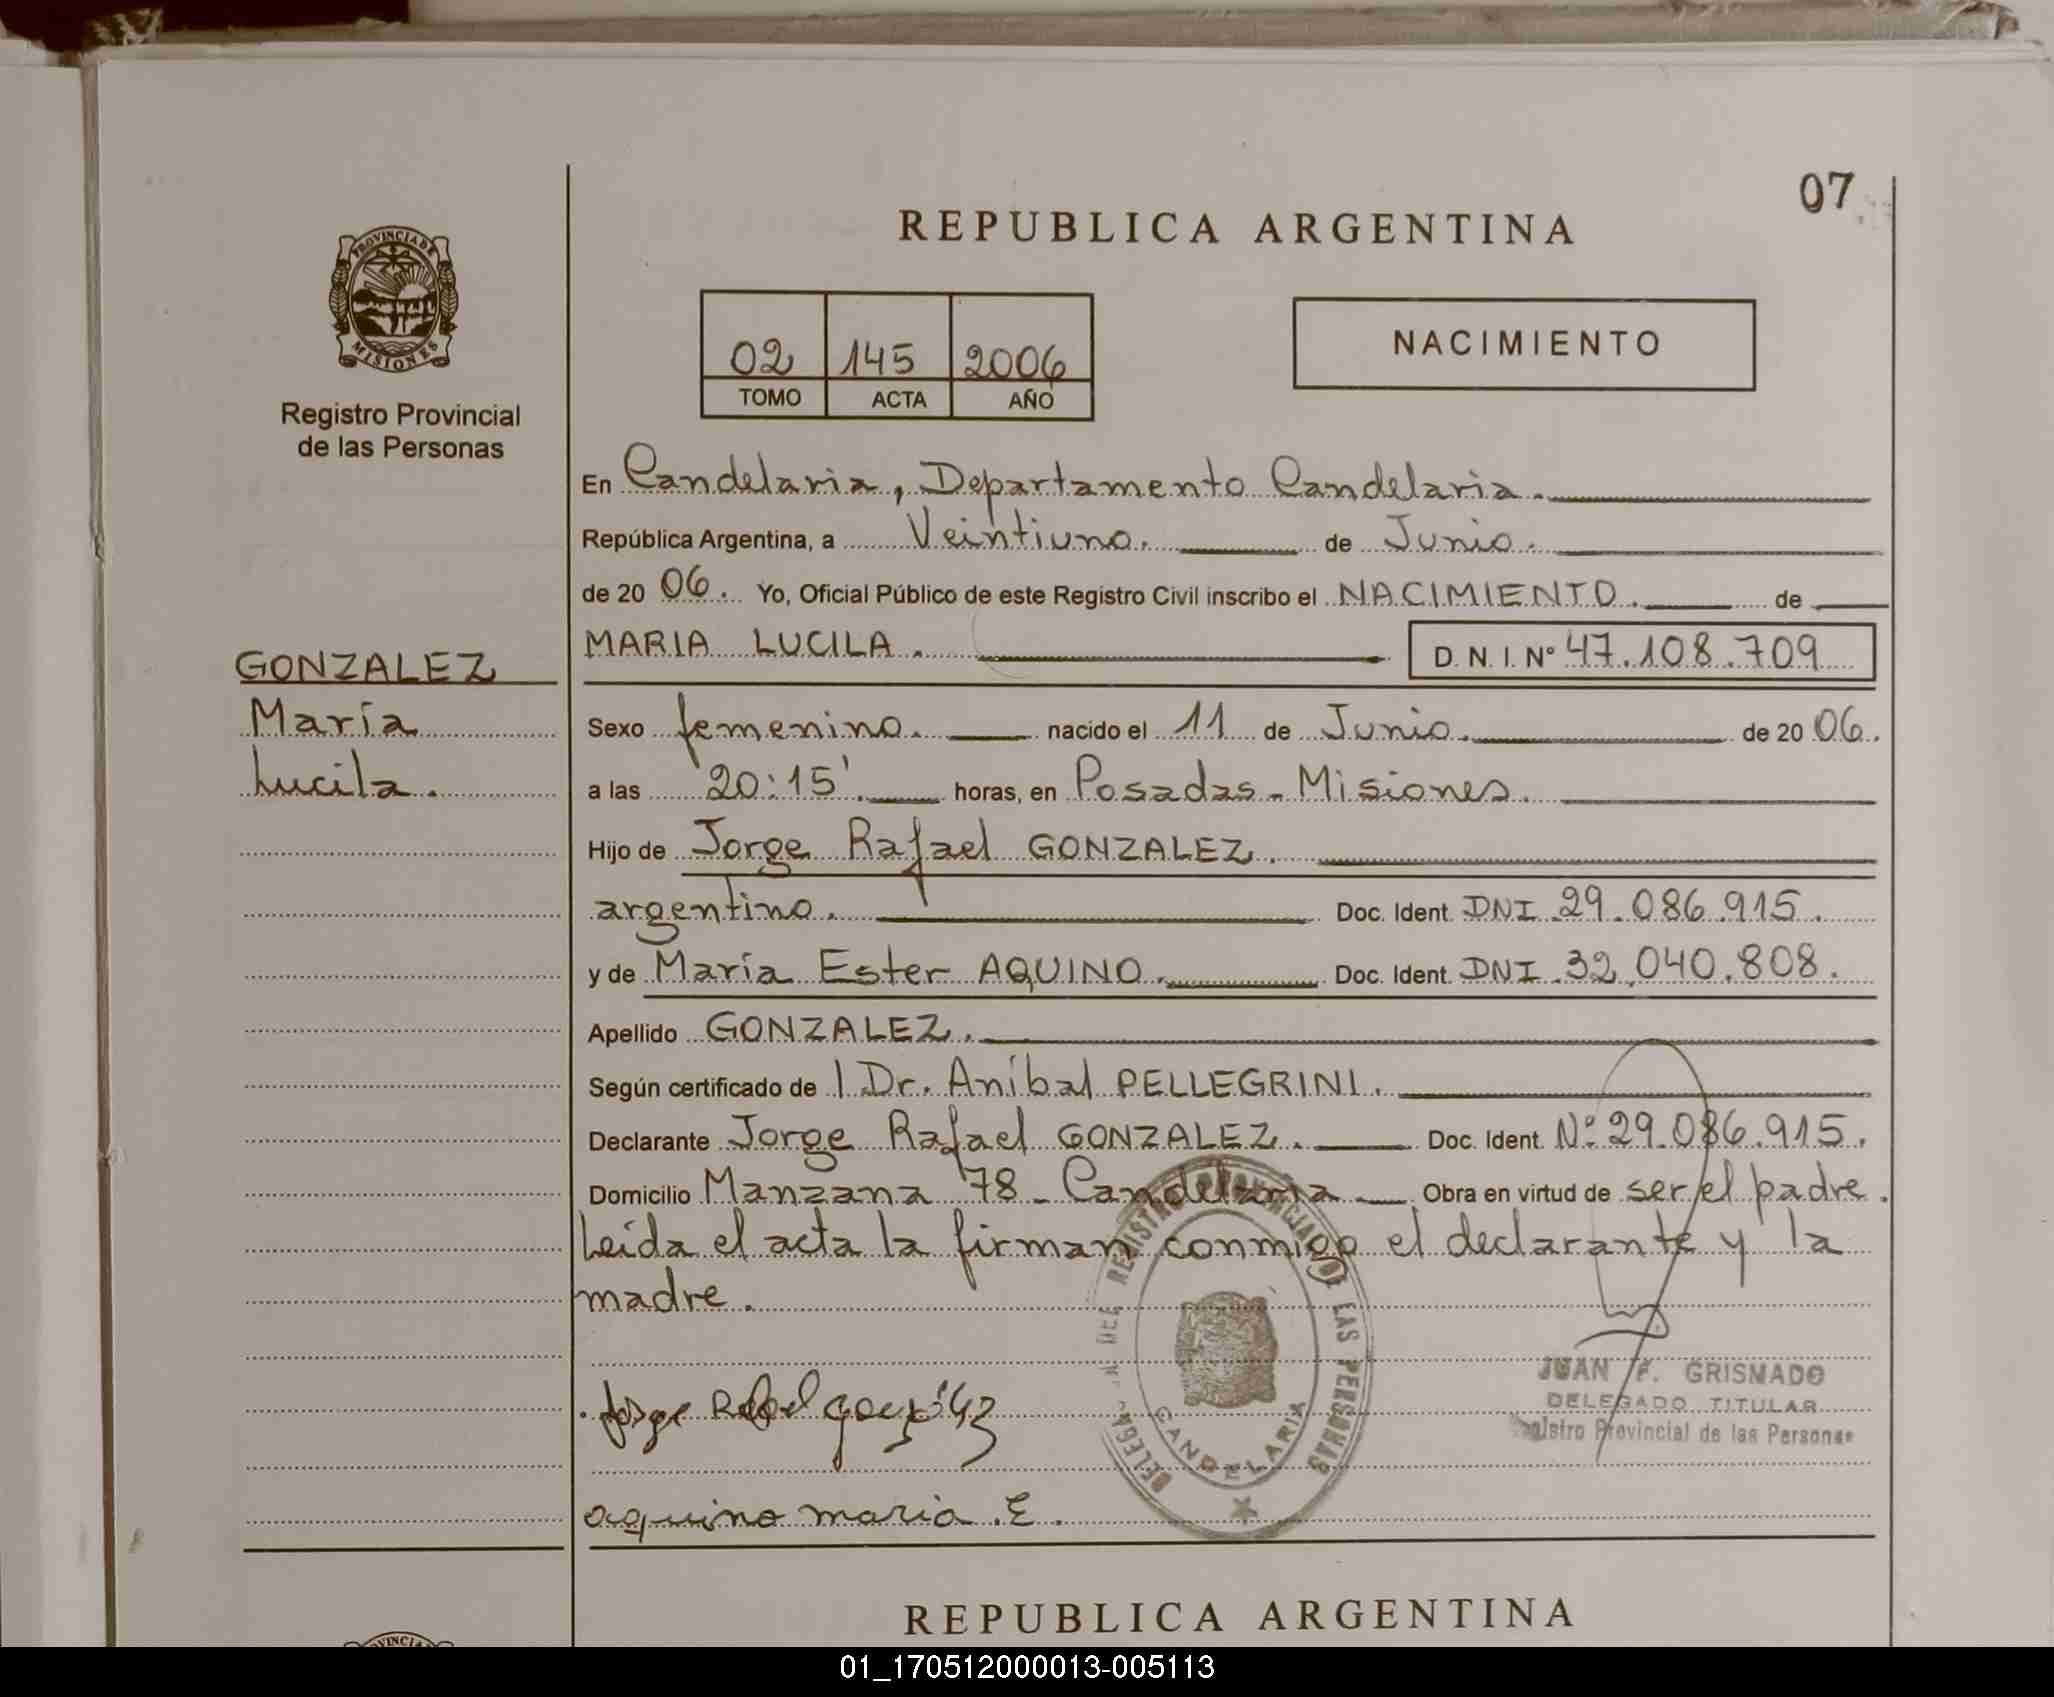 07
REPUBLICA ARGENTINA
PROVINCIA DE
MISIONES
Registro Provincial
de las Personas
02 145 2006
TOMO ACTA AÑO
NACIMIENTO
En Candelaria, Departamento Candelaria.
República Argentina, a Veintiuno. de Junio.
de 20 06. Yo, Oficial Público de este Registro Civil inscribo el NACIMIENTO. de
MARIA LUCILA. D.N.I. Nº 47.108.709
GONZALEZ
María
Lucila.
Sexo femenino. nacido el 11 de Junio. de 20 06.
a las 20:15'. horas, en Posadas - Misiones.
Hijo de Jorge Rafael GONZALEZ.
argentino. Doc. Ident. DNI 29.086.915.
y de María Ester AQUINO. Doc. Ident. DNI 32.040.808.
Apellido GONZALEZ.
Según certificado de l Dr. Aníbal PELLEGRINI.
Declarante Jorge Rafael GONZALEZ. Doc. Ident. Nº 29.086.915.
Domicilio Manzana 78 - Candelaria Obra en virtud de ser el padre.
Leída el acta la firman conmigo el declarante y la
madre.
REGISTRO PROVINCIAL DE LAS PERSONAS
CANDELARIA
JUAN F. GRISMADO
DELEGADO TITULAR
Provincial de las Personas
Jorge Rafael
aquino maria. E.
REPUBLICA ARGENTINA
01_170512000013-005113